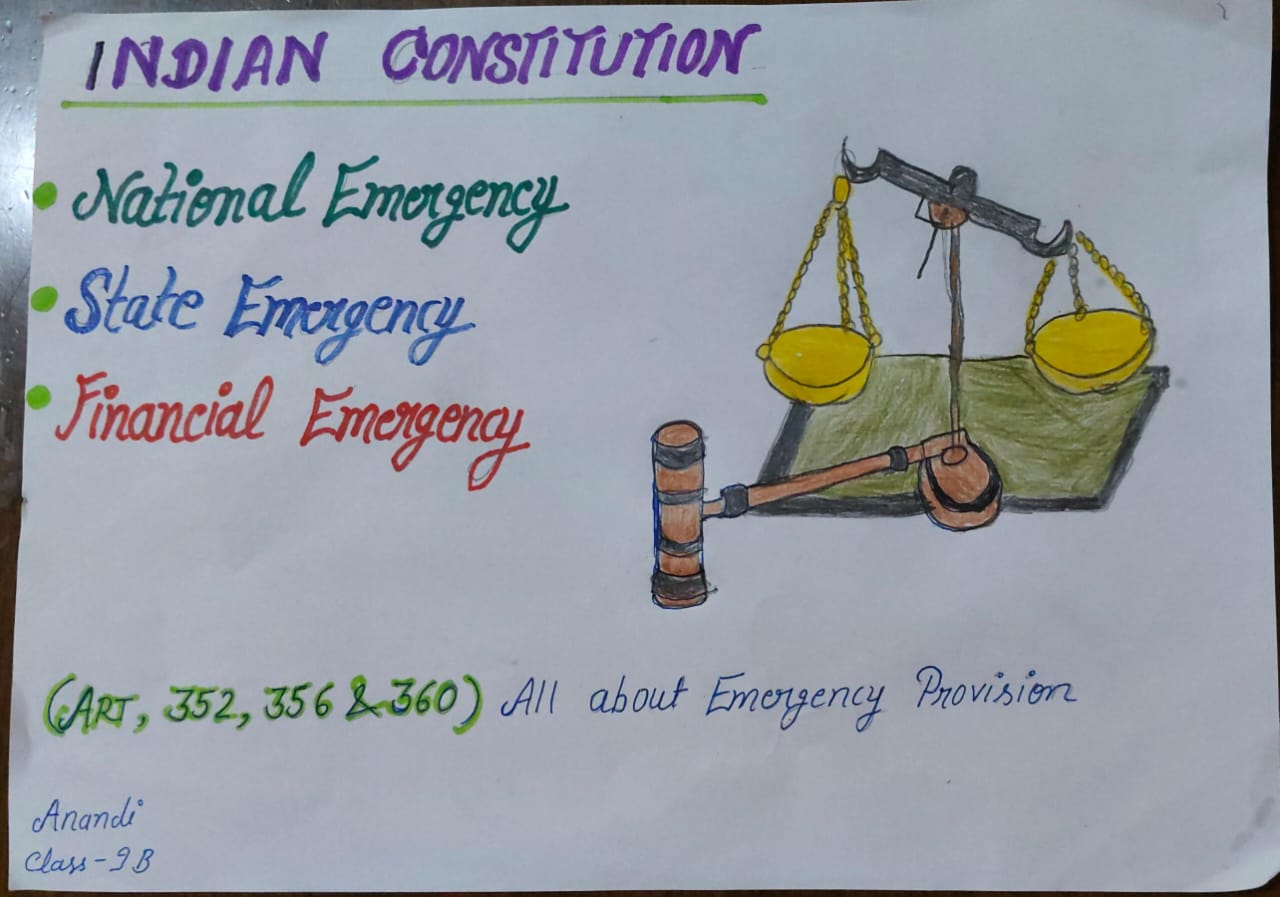 INDIAN CONSTITUTION
• National Emergency
• State Emergency
• Financial Emergency
(ART, 352, 356 & 360) All about Emergency Provision
Anandi
Class - 9 B